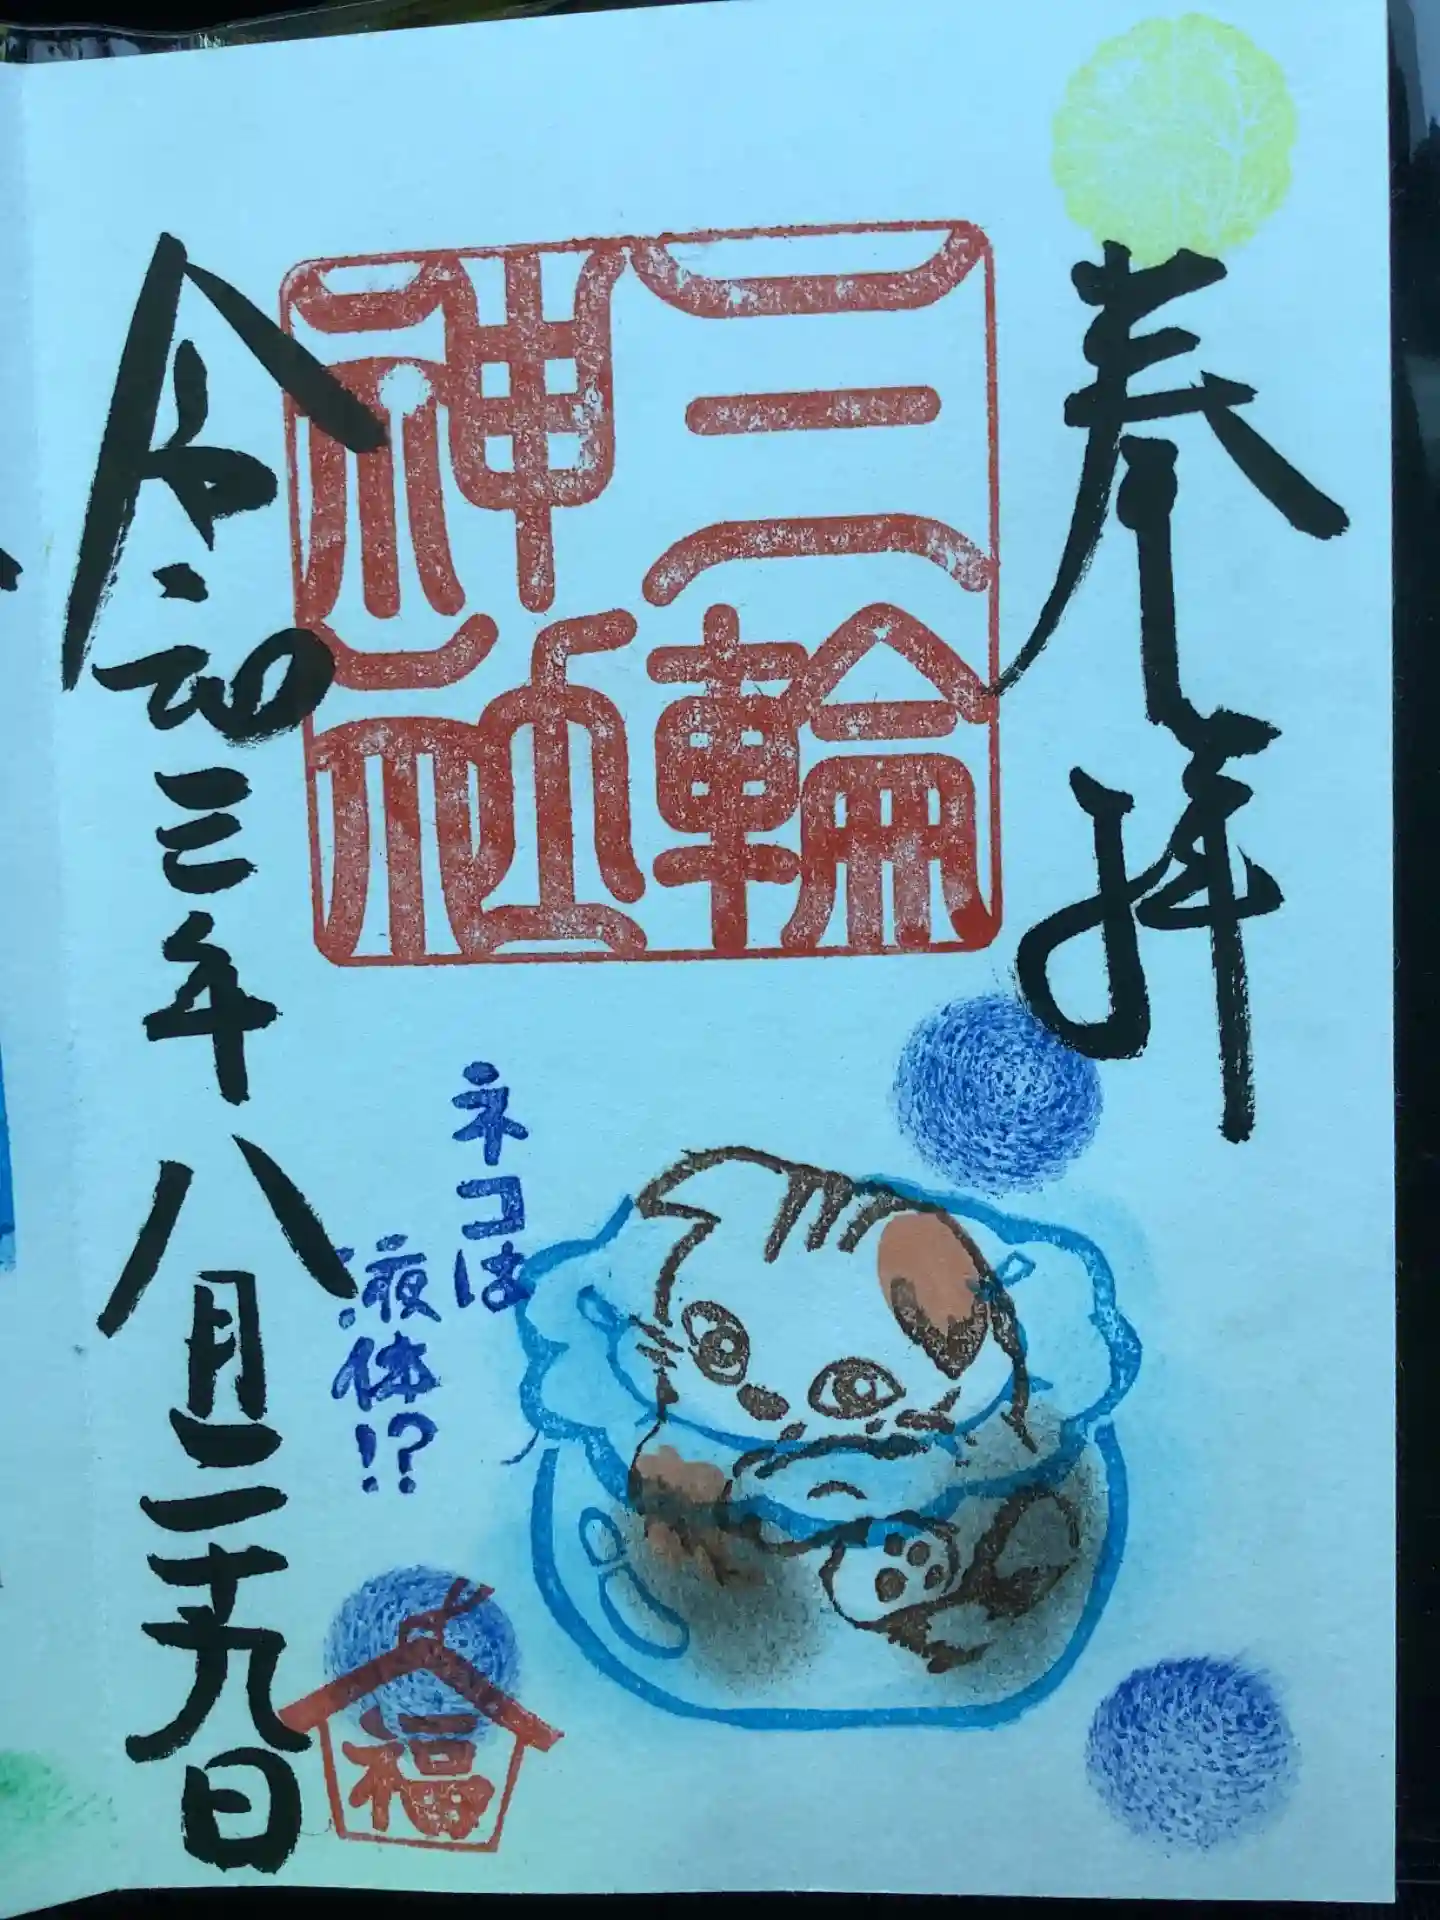 奉拝
三輪
神社
ネコは
液体!?
福
令和三年八月二十九日